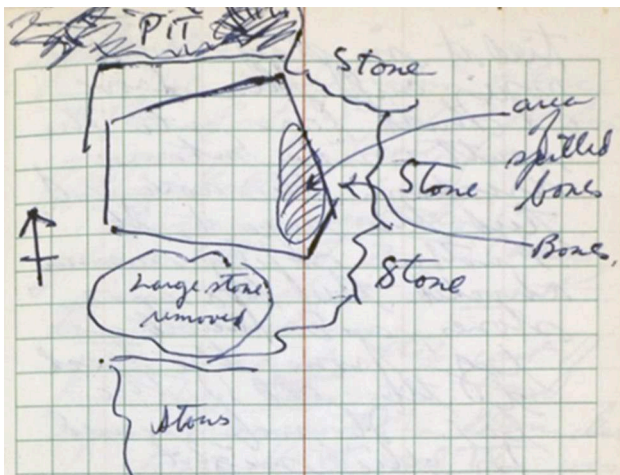 PIT
Stone
area
of
spilled
bones
Stone
Bones.
Stone
Large stone
removed
Stones